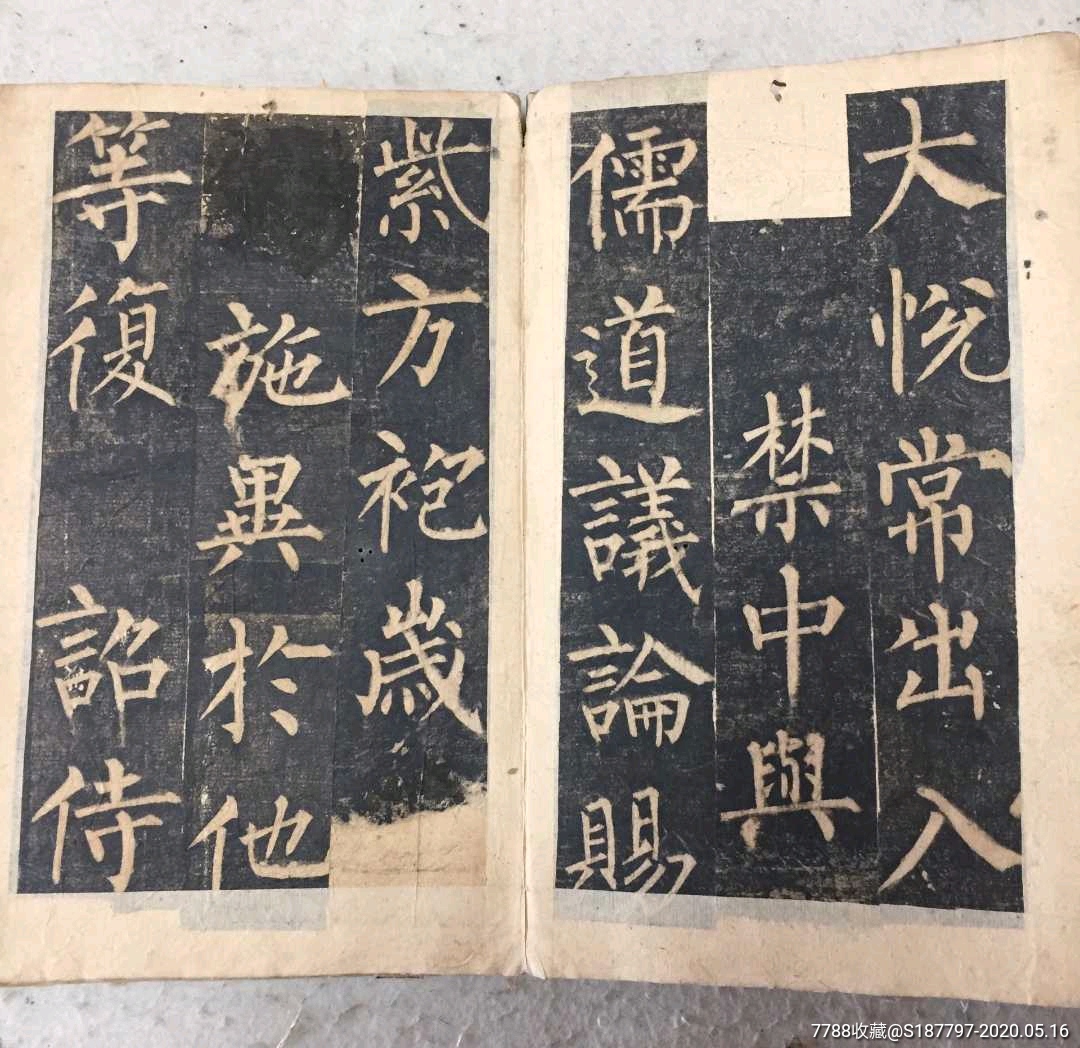 大悅常出入
禁中與
儒道議論賜
紫方袍歲
施異於他
等復詔侍
7788收藏@S187797-2020.05.16